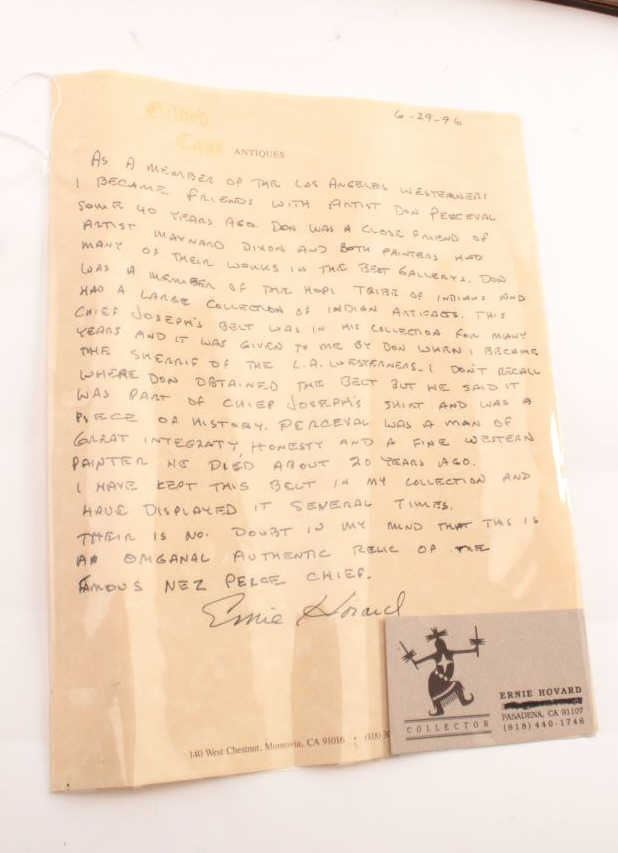 6-29-96
ANTIQUES
AS A MEMBER OF THE LOS ANGELES WESTERNERS
I BECAME FRIENDS WITH ARTIST DON PERCEVAL
SOME 40 YEARS AGO. DON WAS A CLOSE FRIEND OF
ARTIST MAYNARD DIXON AND BOTH PAINTERS HAD
MANY OF THEIR WORKS IN THE BEST GALLERYS. DON
WAS A MEMBER OF THE HOPI TRIBE OF INDIANS AND
HAD A LARGE COLLECTION OF INDIAN ARTIFACTS. THIS
CHIEF JOSEPH'S BELT WAS IN HIS COLLECTION FOR MANY
YEARS AND IT WAS GIVEN TO ME BY DON WHEN I BECAME
THE SHERRIF OF THE L.A. WESTERNERS. I DON'T RECALL
WHERE DON OBTAINED THE BELT BUT HE SAID IT
WAS PART OF CHIEF JOSEPH'S SHIRT AND WAS A
PIECE OF HISTORY. PERCEVAL WAS A MAN OF
GREAT INTEGRATY, HONESTY AND A FINE WESTERN
PAINTER HE DIED ABOUT 20 YEARS AGO.
I HAVE KEPT THIS BELT IN MY COLLECTION AND
HAVE DISPLAYED IT SEVERAL TIMES.
THEIR IS NO DOUBT IN MY MIND THAT THIS IS
AN ORIGANAL AUTHENTIC RELIC OF THE
FAMOUS NEZ PERCE CHIEF.
Ernie Hovard
COLLECTOR
ERNIE HOVARD
PASADENA, CA 91107
(818) 440-1746
140 West Chestnut, Monrovia, CA 91016 • (818)